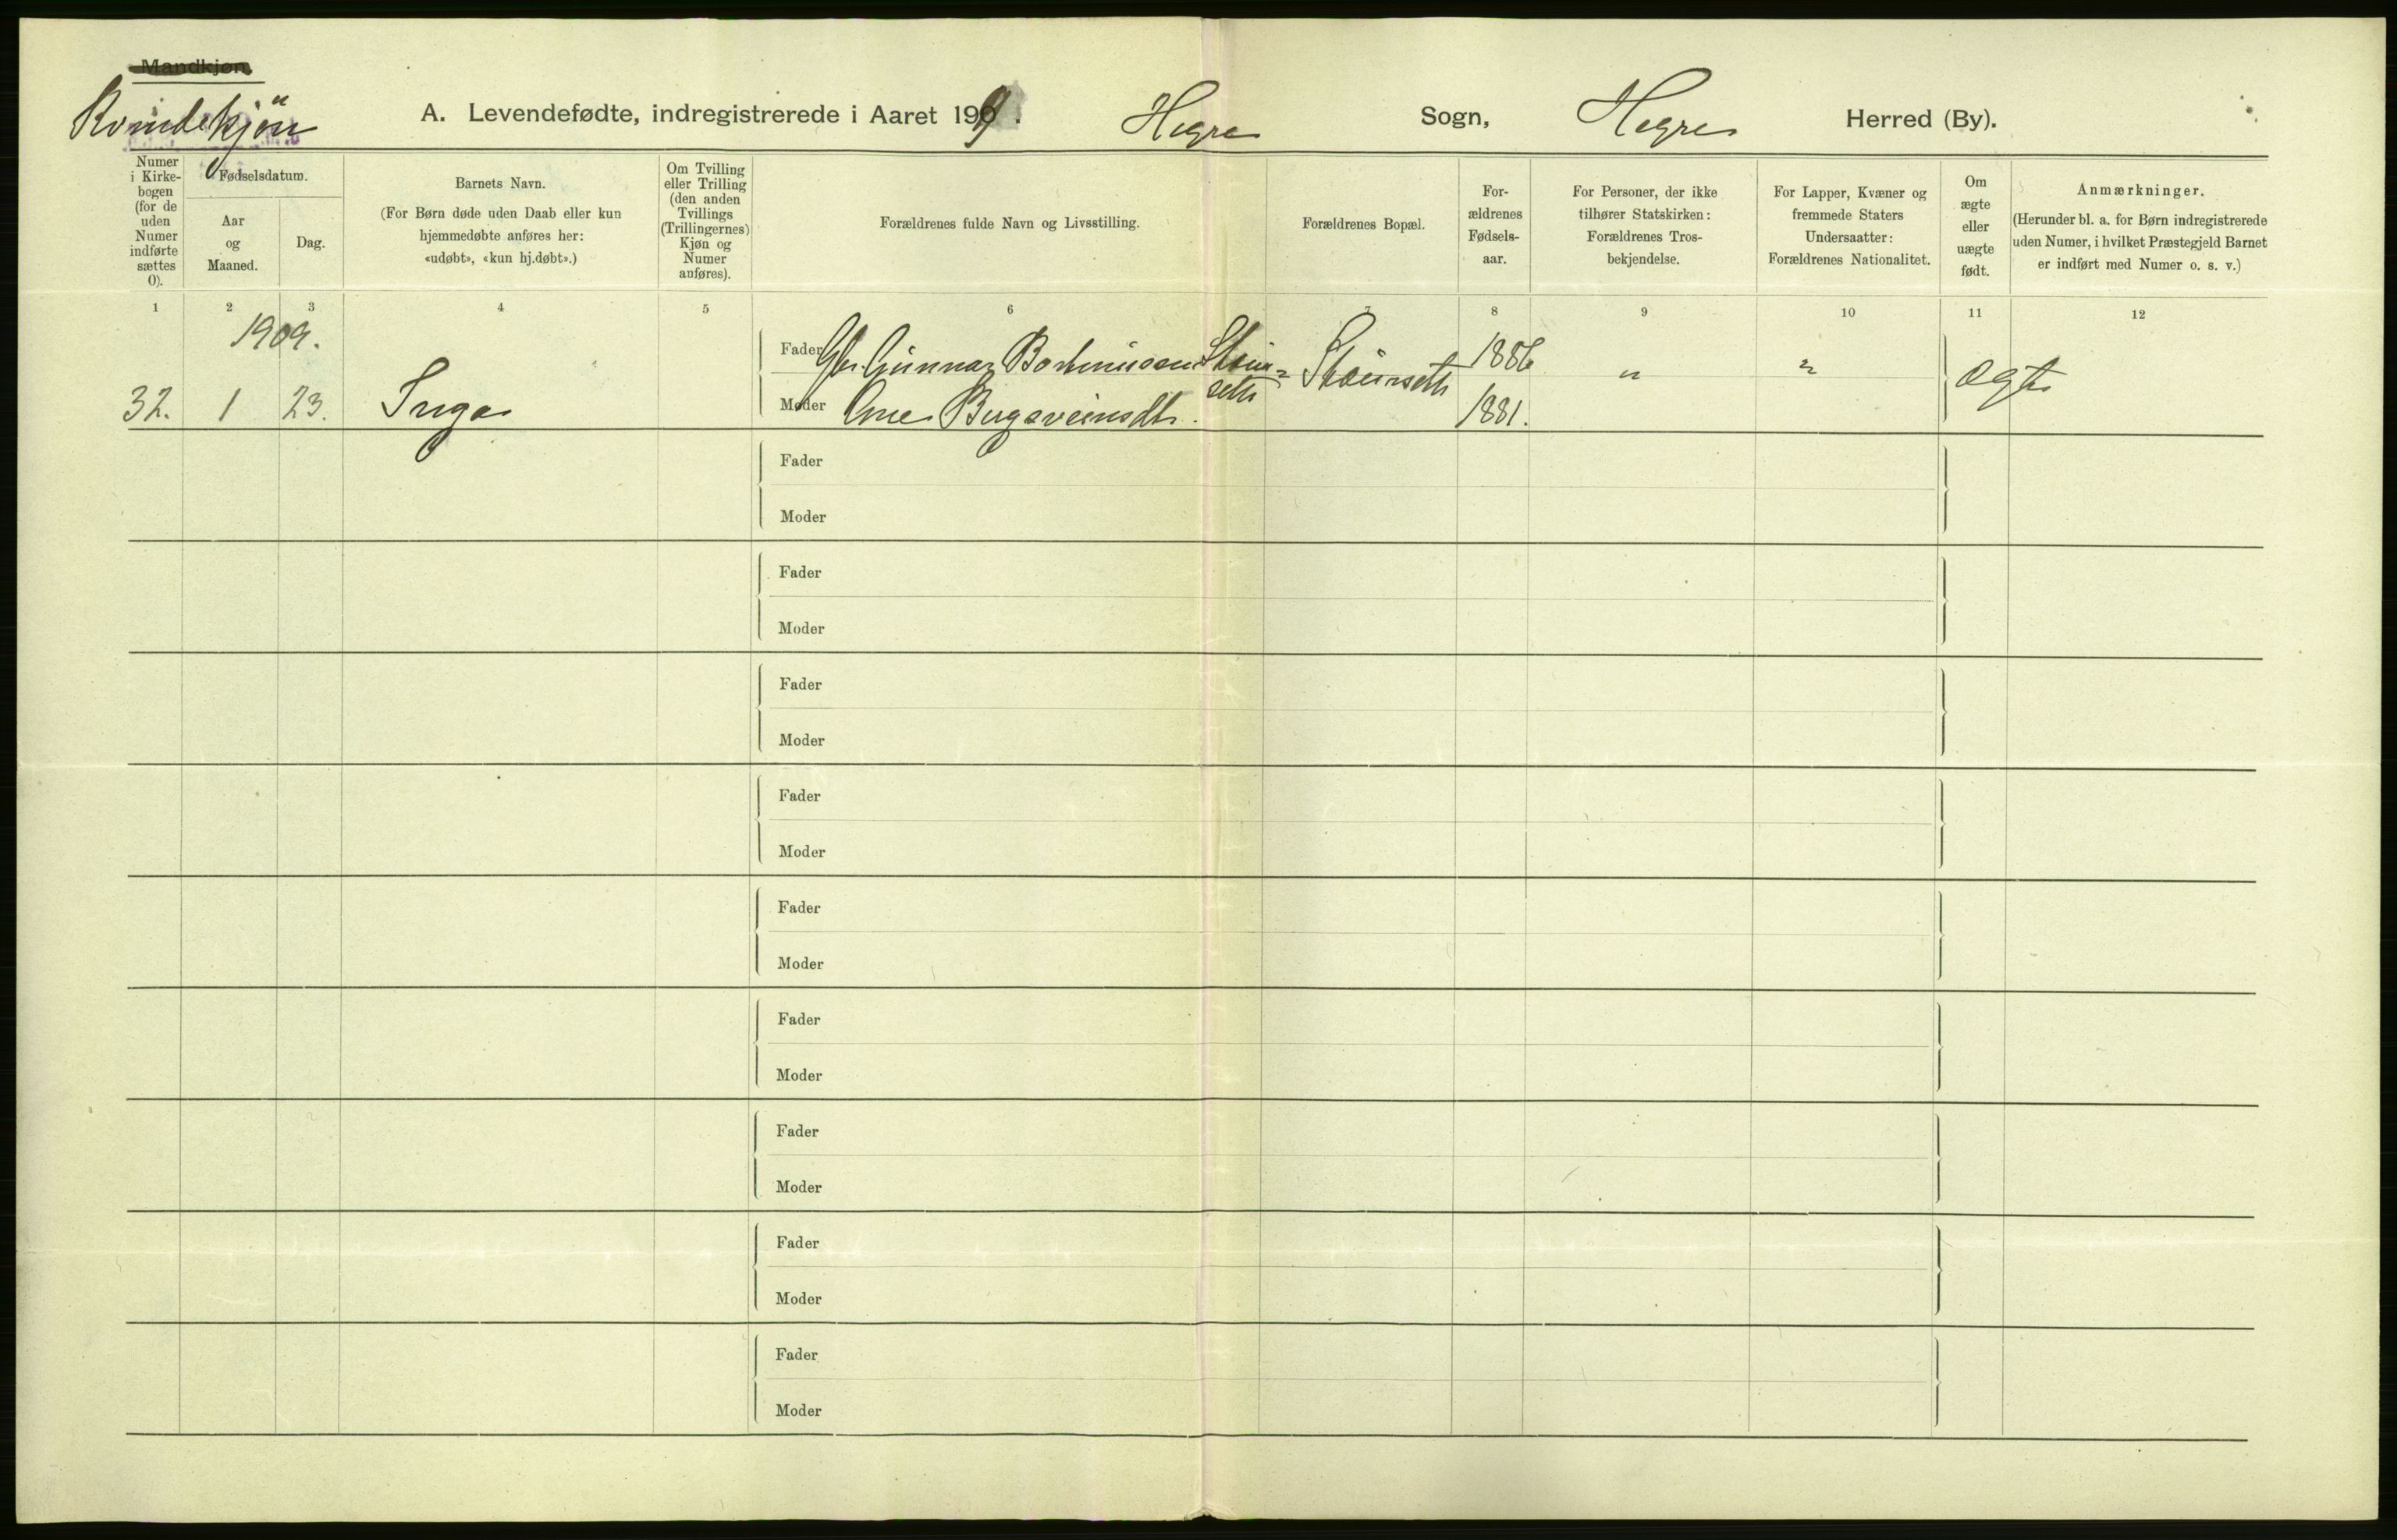 Mandkjøn.
Kvindekjøn
A. Levendefødte, indregistrerede i Aaret 1909. Hegre Sogn, Hegre Herred (By).
Numer i Kirke-bogen (for de uden Numer indførte sættes 0).
Fødselsdatum.
Aar og Maaned.
Dag.
Barnets Navn.
(For Børn døde uden Daab eller kun hjemmedøbte anføres her: «udøbt», «kun hj.døbt».)
Om Tvilling eller Trilling (den anden Tvillings (Trillingernes) Kjøn og Numer anføres).
Forældrenes fulde Navn og Livsstilling.
Forældrenes Bopæl.
For-ældrenes Fødsels-aar.
For Personer, der ikke tilhører Statskirken: Forældrenes Tros-bekjendelse.
For Lapper, Kvæner og fremmede Staters Undersaatter: Forældrenes Nationalitet.
Om ægte eller uægte født.
Anmærkninger.
(Herunder bl. a. for Børn indregistrerede uden Numer, i hvilket Præstegjeld Barnet er indført med Numer o. s. v.)
1 2 3 4 5 6 7 8 9 10 11 12
1909.
Fader Gbr. Gunnar 1886 " "
32. 1 23. Inga ægte
Moder Ane 1881.
Fader
Moder
Fader
Moder
Fader
Moder
Fader
Moder
Fader
Moder
Fader
Moder
Fader
Moder
Fader
Moder
Fader
Moder